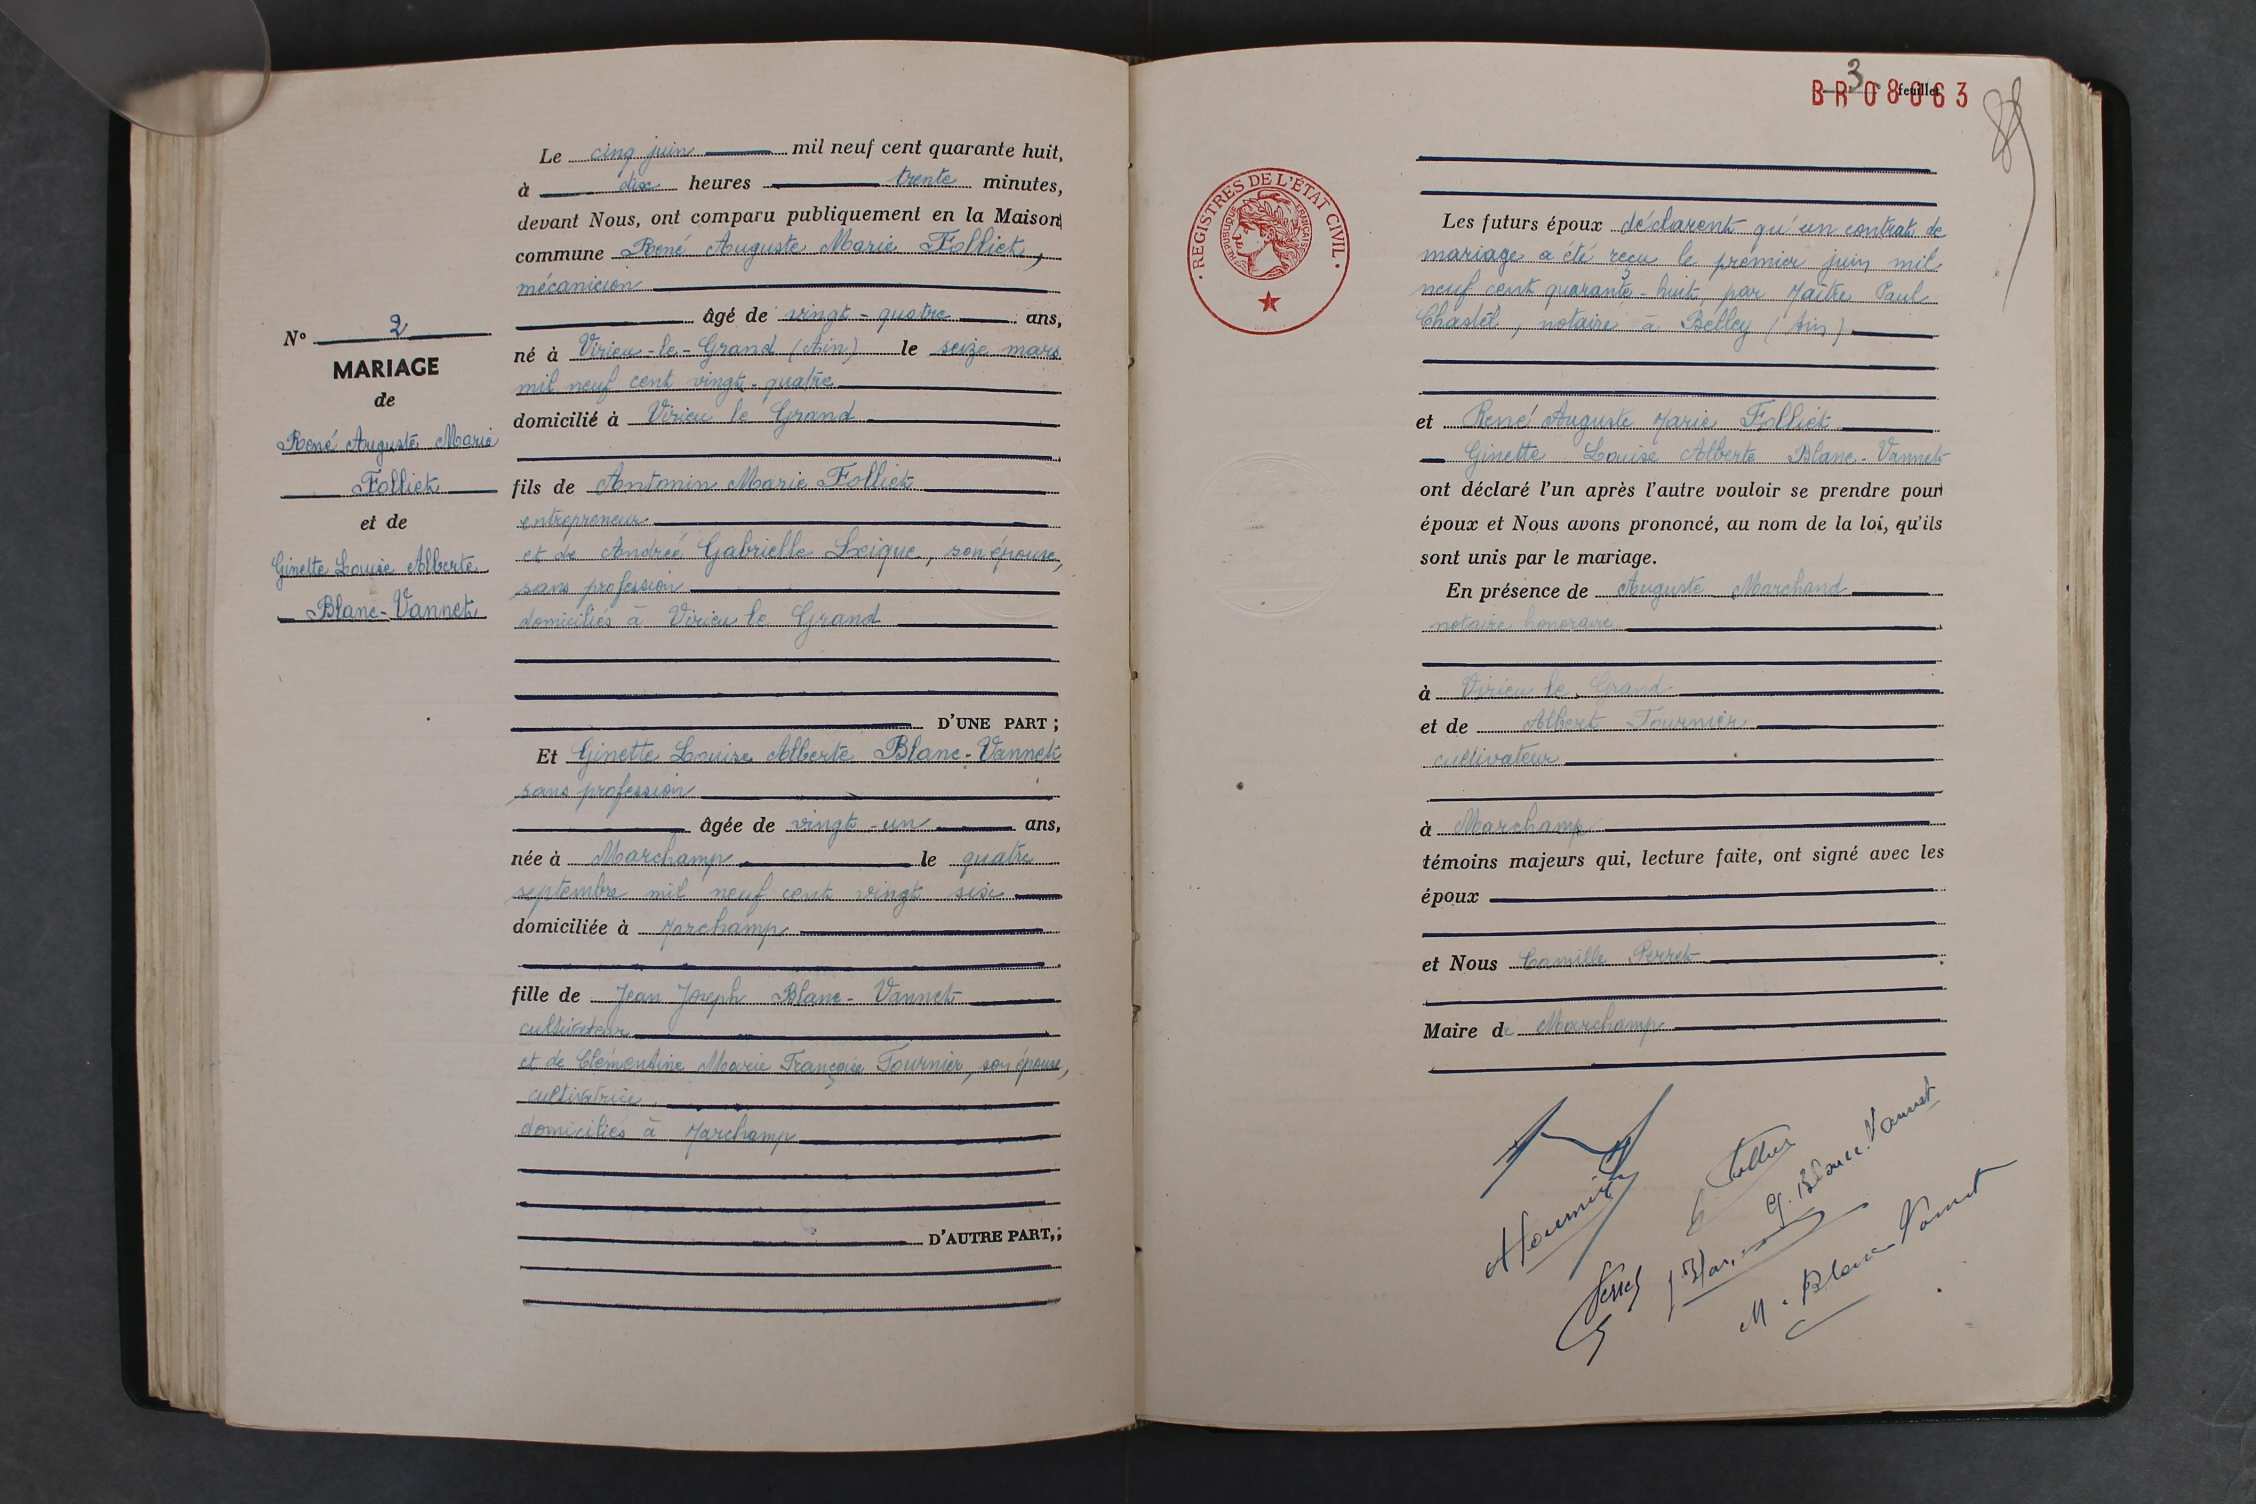 Nº 2
MARIAGE
de
René Auguste Marie
Folliet
et de
Ginette Louise Alberte
Blanc-Vannet
Le cinq juin mil neuf cent quarante huit,
à dix heures trente minutes,
devant Nous, ont comparu publiquement en la Maison
commune René Auguste Marie Folliet,
mécanicien
âgé de vingt-quatre ans,
né à Virieu-le-Grand (Ain) le seize mars
mil neuf cent vingt-quatre
domicilié à Virieu le Grand
fils de Antonin Marie Folliet
entrepreneur
et de Andrée Gabrielle, son épouse,
sans profession
domiciliés à Virieu le Grand
D'UNE PART ;
Et Ginette Louise Alberte Blanc-Vannet
sans profession
âgée de vingt-un ans,
née à Marchamp le quatre
septembre mil neuf cent vingt six
domiciliée à Marchamp
fille de Jean Joseph Blanc-Vannet
cultivateur
et de Clémentine Marie Françoise Tournier, son épouse,
cultivatrice
domiciliés à Marchamp
D'AUTRE PART, ;
3 feuillet
BR08063
REGISTRES DE L'ÉTAT CIVIL
RÉPUBLIQUE FRANÇAISE
Les futurs époux déclarent qu'un contrat de
mariage a été reçu le premier juin mil
neuf cent quarante-huit, par Maître Paul
Chastel, notaire à Belley (Ain)
et René Auguste Marie Folliet
Ginette Louise Alberte Blanc-Vannet
ont déclaré l'un après l'autre vouloir se prendre pour
époux et Nous avons prononcé, au nom de la loi, qu'ils
sont unis par le mariage.
En présence de Auguste Marchand
notaire honoraire
à Virieu le Grand
et de Albert Tournier
cultivateur
à Marchamp
témoins majeurs qui, lecture faite, ont signé avec les
époux
et Nous Camille Perret
Maire de Marchamp
A Tournier
Folliet
G. Blanc-Vannet
Perret
M. Blanc-Vannet